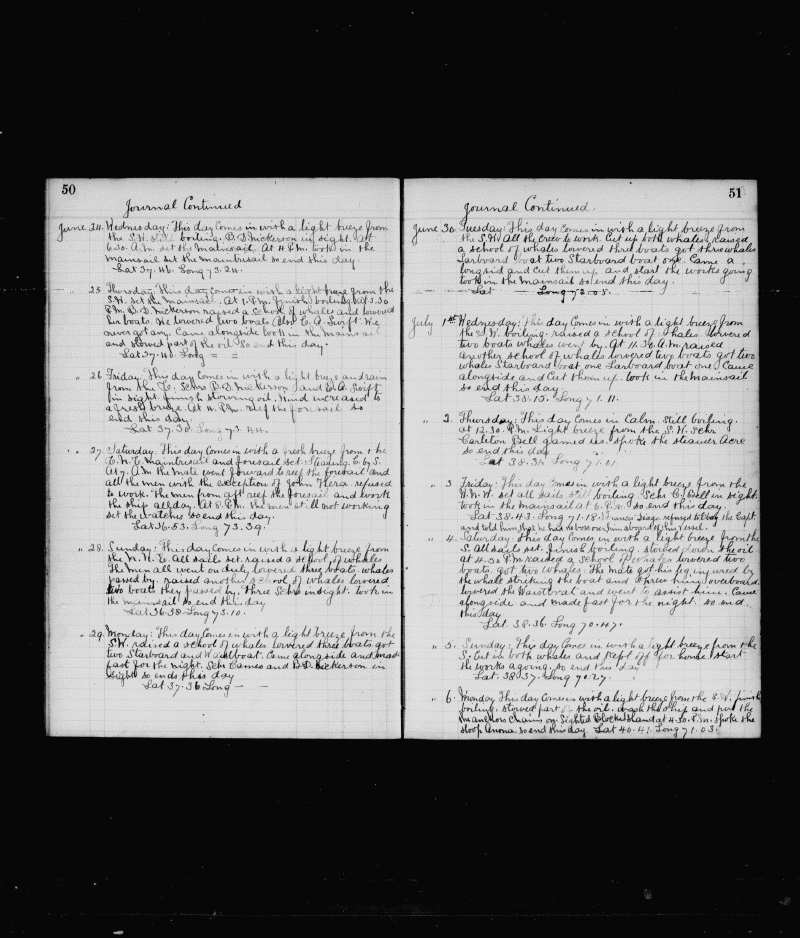 50
Journal Continued
June 24. Wednesday: This day comes in with a light breeze from
the S.W. still boiling. B.D. Nickerson in sight. At
6.30. A.M. set the mainsail. At 4 P.M. took in the
mainsail set the maintrisail so end this day.
Lat 37.46. Long 73.24.
" 25 Thursday, This day comes in with a light breeze from the
S.W. set the mainsail. At 1. P.M. finish boiling. At 3.30
P.M. B.D. Nickerson raised a school of whales and lowered
her boats. We lowered two boats also E.A. Swift. We
never got any. Came alongside took in the mainsail
and stowed part of the oil. So end this day.
Lat 37.40. Long = =
" 26. Friday. This day comes in with a light breeze and rain
from the Schrs B.D. Nickerson and E.A. Swift
in sight. finish stowing oil. Wind increased to
a fresh breeze. At 4. P.M. reef the foresail so
end this day.
Lat 37.30. Long 73.44.
" 27. Saturday: This day comes in with a fresh breeze from the
E.N.E. Maintrisail and foresail set. Stearing E. by S.
At 7. A.M the mate went forward to reef the foresail and
all the men with the exception of John Flera refused
to work. The men from aft reef the foresail and work
the ship all day. At 8. P.M. the men still not working
set the watches so end this day.
Lat 36.53. Long 73.39.
" 28. Sunday: This day comes in with a light breeze from
the N.N.E. All sails set. raised a school of whales
The men all went on duty, lowered three boats. whales
passed by. raised another school of whales lowered
two boats they passed by. three Schrs insight. took in
the mainsail so end this day
Lat 36.38. Long 73.10.
" 29. Monday: This day comes in with a light breeze from the
S.W. raised a school of whales lowered three boats got
two Starboard and Waistboat. Came alongside and made
fast for the night. Schr Eames and B.D. Nickerson in
sight so ends this day
Lat 37.36 Long —
51
Journal Continued.
June 30 Tuesday: This day comes in with a light breeze from
the S.W. All the crew to work. Cut up both whales, raised
a school of whales lowered three boats got three whales
Larboard boat two Starboard boat one. Came a
longsid and Cut them up and start the works going
took in the mainsail so end this day.
Lat — Long 72.05.
July 1st Wednesday: This day Comes in with a light breeze from
the S.W. boiling. raised a school of whales. lowered
two boats whales went by. At 11.30. A.M. raised
another school of whales lowered two boats got two
whales Starboard boat one Larboard boat one. Came
alongside and Cut them up. took in the mainsail
so end this day.
Lat 38.15. Long 71.11.
" 2. Thursday: This day Comes in Calm. Still boiling.
at 12.30. P.M. Light breeze from the S.W. Schr
Carleton Bell gamed us. spoke the steamer Acre
so end this day
Lat 38.31. Long 71.01
" 3 Friday: This day Comes in with a light breeze from the
W.N.W. set all sails still boiling. Schr C. Bell in sight.
took in the mainsail at 6. P.M. so end this day.
Lat 38.43. Long 71.18. Francis Diage refused to obey the Capt.
and told him that he had no boss over him aboard of this vessel.
" 4. Saturday: This day Comes in with a light breeze from the
S. All sails set. finish boiling. stowed down the oil
at 4.30 P.M. raised a school of whales lowered two
boats. got two whales. The mate got his leg injured by
the whale striking the boat and threw him overboard.
lowered the Waistboat and went to assist him. Came
alongside and made fast for the night. so end
this day
Lat. 38.36. Long 70.47.
" 5. Sunday: This day Comes in with a light breeze from the
S. Cut in both whales and Kept off for home start
the works agoing. so end this day
Lat. 38.37. Long 70.27.
" 6. Monday This day Comes in with a light breeze from the S.W. finish
boiling. stowed part of the oil. wash the ship and put the
anchors chains on. Sighted Block Island at 4.30. P.M. spoke the
sloop Anona. so end this day. Lat 40.41. Long 71.03.